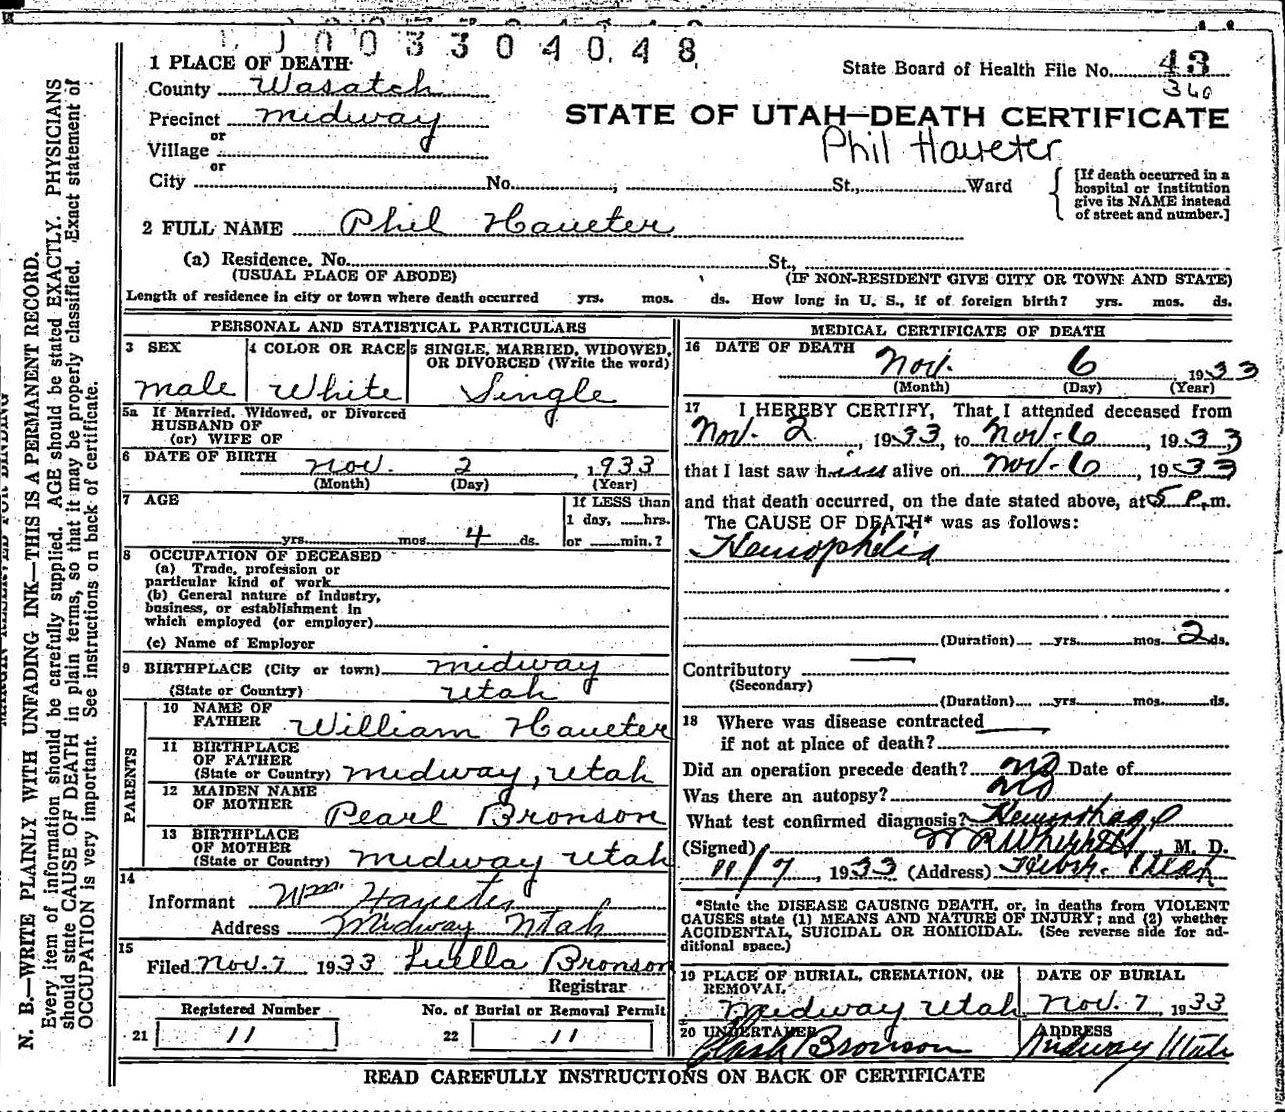 003304048
1 PLACE OF DEATH
State Board of Health File No. 43
County Wasatch
360
Precinct Midway
STATE OF UTAH—DEATH CERTIFICATE
or
Village
Phil Haueter
or
City No. , St., Ward
[If death occurred in a
hospital or institution
give its NAME instead
of street and number.]
2 FULL NAME Phil Haueter
(a) Residence. No. St.,
(USUAL PLACE OF ABODE) (IF NON-RESIDENT GIVE CITY OR TOWN AND STATE)
Length of residence in city or town where death occurred yrs. mos. ds. How long in U. S., if of foreign birth? yrs. mos. ds.
PERSONAL AND STATISTICAL PARTICULARS
3 SEX
male
4 COLOR OR RACE
White
5 SINGLE, MARRIED, WIDOWED,
OR DIVORCED (Write the word)
Single
5a If Married, Widowed, or Divorced
HUSBAND OF
(or) WIFE OF
6 DATE OF BIRTH nov. 2, 1933
(Month) (Day) (Year)
7 AGE
yrs. mos. 4 ds.
If LESS than
1 day, hrs.
or min.?
8 OCCUPATION OF DECEASED
(a) Trade, profession or
particular kind of work
(b) General nature of industry,
business, or establishment in
which employed (or employer)
(c) Name of Employer
9 BIRTHPLACE (City or town) midway
(State or Country) utah
PARENTS
10 NAME OF
FATHER William Haueter
11 BIRTHPLACE
OF FATHER
(State or Country) midway, utah
12 MAIDEN NAME
OF MOTHER Pearl Bronson
13 BIRTHPLACE
OF MOTHER
(State or Country) midway utah
14
Informant Wm. Haueter
Address Midway Utah
15
Filed Nov. 7 1933 Luella Bronson
Registrar
Registered Number
21 11
No. of Burial or Removal Permit
22 11
MEDICAL CERTIFICATE OF DEATH
16 DATE OF DEATH
Nov. 6 1933
(Month) (Day) (Year)
17 I HEREBY CERTIFY, That I attended deceased from
Nov. 2, 1933, to Nov. 6, 1933
that I last saw him alive on Nov. 6, 1933
and that death occurred, on the date stated above, at 5 P. m.
The CAUSE OF DEATH* was as follows:
Hemophelia
(Duration) yrs. mos. 2 ds.
Contributory
(Secondary)
(Duration) yrs. mos. ds.
18 Where was disease contracted
if not at place of death?
Did an operation precede death? no Date of
Was there an autopsy? no
What test confirmed diagnosis? Hemorrhage
(Signed) W R Wherritt, M. D.
11/7, 1933 (Address) Heber. Utah
*State the DISEASE CAUSING DEATH, or, in deaths from VIOLENT
CAUSES state (1) MEANS AND NATURE OF INJURY; and (2) whether
ACCIDENTAL, SUICIDAL OR HOMICIDAL. (See reverse side for ad-
ditional space.)
19 PLACE OF BURIAL, CREMATION, OR
REMOVAL
Midway Utah
DATE OF BURIAL
Nov. 7, 1933
20 UNDERTAKER
Bronson
ADDRESS
Midway Utah
READ CAREFULLY INSTRUCTIONS ON BACK OF CERTIFICATE
N. B.—WRITE PLAINLY WITH UNFADING INK—THIS IS A PERMANENT RECORD.
Every item of information should be carefully supplied. AGE should be stated EXACTLY. PHYSICIANS
should state CAUSE OF DEATH in plain terms, so that it may be properly classified. Exact statement of
OCCUPATION is very important. See instructions on back of certificate.